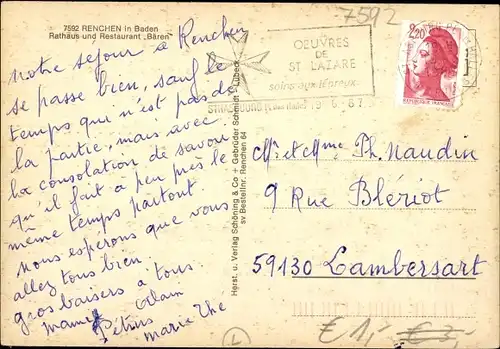 7592 RENCHEN in Baden
Rathaus und Restaurant „Bären"
7592
notre séjour à Renchen
se passe bien, sauf le
temps qui n'est pas de
la partie, mais avec
la consolation de savoir
qu'il fait à peu près le
même temps partout.
nous esperons que vous
allez tous bien.
gros baisers a tous
mamie Alain
Petrus
marie the
Herst. u. Verlag Schöning & Co + Gebrüder Schmidt - Lübeck
sv Bestellnr. Renchen 64
OEUVRES
DE
ST LAZARE
soins aux lépreux
STRASBOURG
2,20
RÉPUBLIQUE FRANÇAISE
Mr et Mme Ph. Naudin
9 Rue Blériot
59130 Lambersart
L
€ 1,- € 3,-